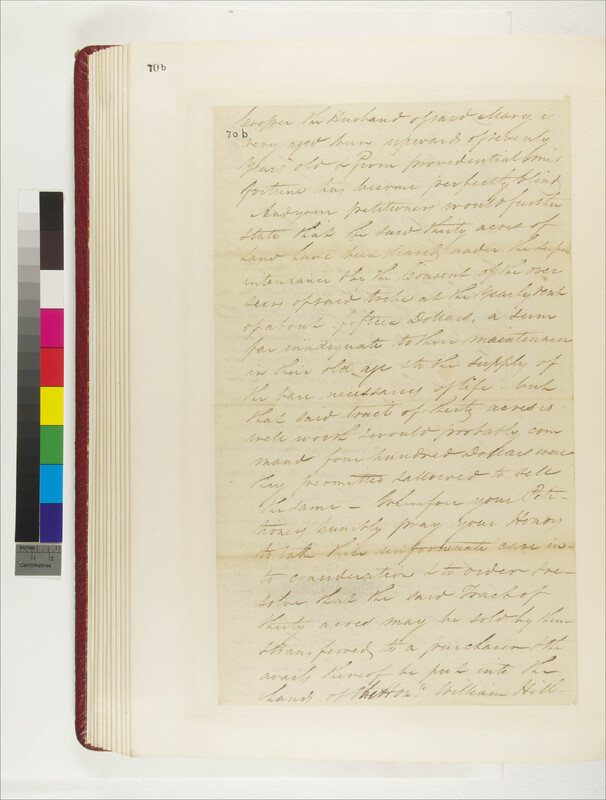 70 b
70 b
Cooper the Husband of said Mary is
very aged being upwards of seventy
Years old & from providential mis
fortune has become perfectly blind
And your petitioners would further
state that the said thirty acres of
land have been leased under the super
intendance & the Consent of the over
seers of said tribe at the yearly rent
of about fifteen Dollars, a sum
far inadiquate to their maintenance
in their old age & the supply of
the bare necessaries of life but
that said tract of thirty acres is
well worth & would probably com
mand four hundred Dollars were
they permitted & allowed to sell
the same — Wherefore your Peti-
tioners humbly pray your Honors
to take their unfortunate case in-
to consideration & to order & re-
solve that the said Tract of
thirty acres may be sold by them
& transferred to a purchaser & the
avails thereof be put into the
hands of the Hon. William Hill-
Inches
1
Centimetres
1
2